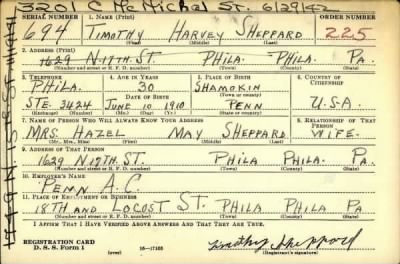 3201 C McMichael St. 6/29/42
SERIAL NUMBER 1. NAME (Print) ORDER NUMBER
694 TIMOTHY HARVEY SHEPPARD 225
(First) (Middle) (Last)
2. ADDRESS (Print)
1629 N 17TH ST. PHILA. PHILA. PA.
(Number and street or R. F. D. number) (Town) (County) (State)
3. TELEPHONE 4. AGE IN YEARS 5. PLACE OF BIRTH 6. COUNTRY OF CITIZENSHIP
PHILA. 30 SHAMOKIN
DATE OF BIRTH (Town or county)
STE. 3424 JUNE 10 1910 PENN U.S.A.
(Exchange) (Number) (Mo.) (Day) (Yr.) (State or country)
7. NAME OF PERSON WHO WILL ALWAYS KNOW YOUR ADDRESS 8. RELATIONSHIP OF THAT PERSON
MRS. HAZEL MAY SHEPPARD WIFE.
(Mr., Mrs., Miss) (First) (Middle) (Last)
9. ADDRESS OF THAT PERSON
1629 N 17TH. ST. PHILA PHILA. PA.
(Number and street or R. F. D. number) (Town) (County) (State)
10. EMPLOYER'S NAME
PENN A.C.
11. PLACE OF EMPLOYMENT OR BUSINESS
18TH AND LOCOST ST. PHILA PHILA PA
(Number and street or R. F. D. number) (Town) (County) (State)
I AFFIRM THAT I HAVE VERIFIED ABOVE ANSWERS AND THAT THEY ARE TRUE.
REGISTRATION CARD
D. S. S. Form 1 (over) Timothy Sheppard
(Registrant's signature)